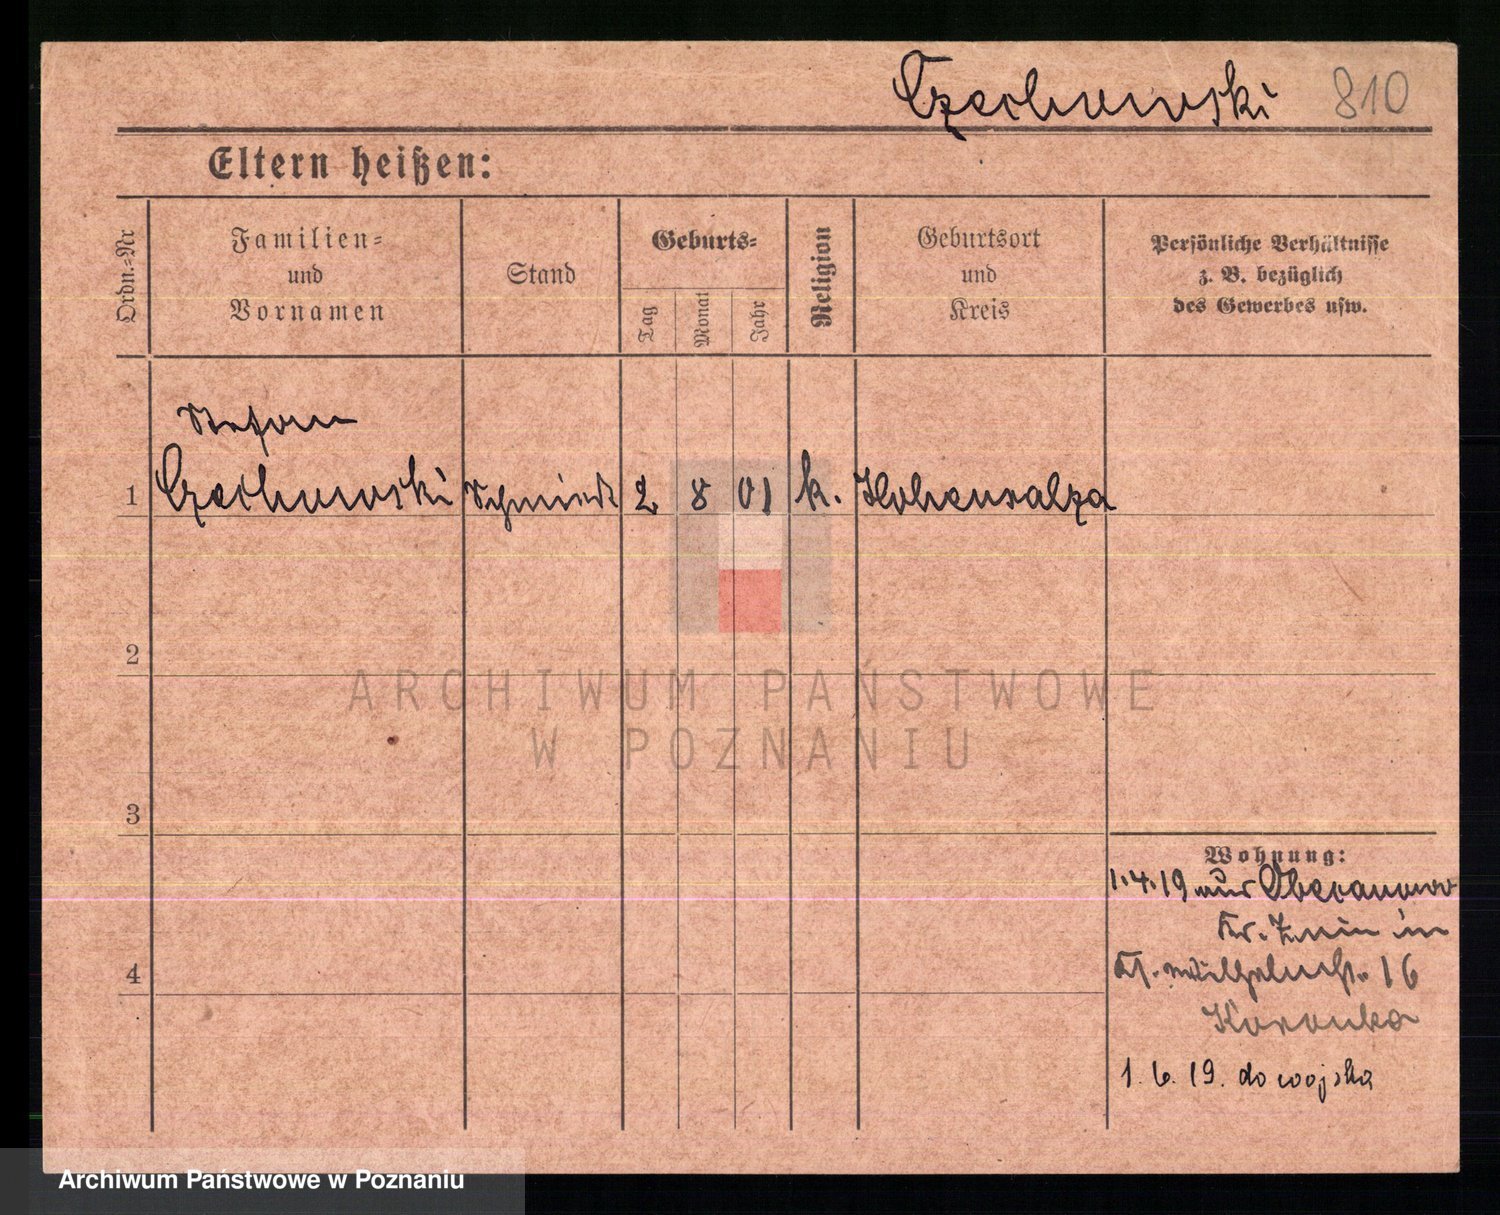 Czechowski 810
Eltern heißen:
Ordn.-Nr
Familien-
und
Vornamen
Stand
Geburts-
Tag
Monat
Jahr
Religion
Geburtsort
und
Kreis
Persönliche Verhältnisse
z. B. bezüglich
des Gewerbes usw.
Stefan
1 Czechowski Schmied 2 8 01 k. Hohensalza
2
ARCHIWUM PAŃSTWOWE
W POZNANIU
3
Wohnung:
1.4.19 aus
Kr. Znin in
Kl. 16
4
1.6.19. do wojska
Archiwum Państwowe w Poznaniu